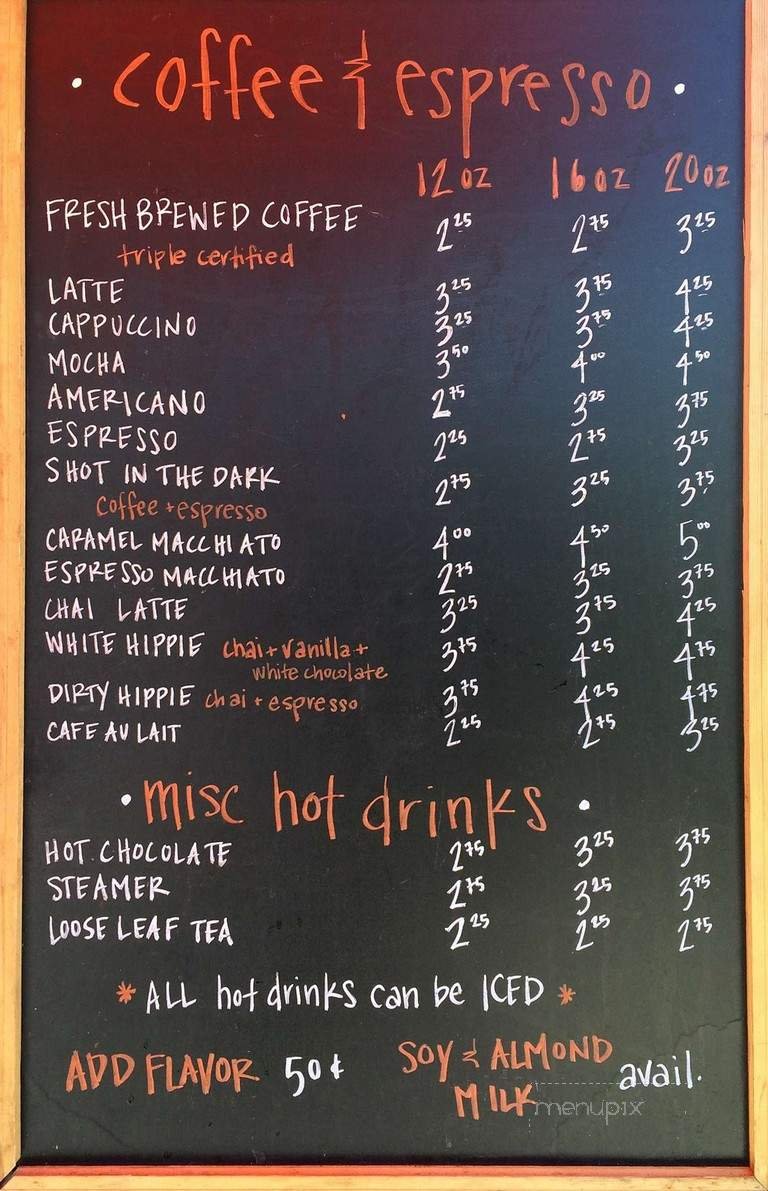 • coffee & espresso •
12 oz 16 oz 20 oz
FRESH BREWED COFFEE 2 25 2 75 3 25
triple certified
LATTE 3 25 3 75 4 25
CAPPUCCINO 3 25 3 75 4 25
MOCHA 3 50 4 00 4 50
AMERICANO 2 75 3 25 3 75
ESPRESSO 2 25 2 75 3 25
SHOT IN THE DARK 2 75 3 25 3 75
coffee + espresso
CARAMEL MACCHIATO 4 00 4 50 5 00
ESPRESSO MACCHIATO 2 75 3 25 3 75
CHAI LATTE 3 25 3 75 4 25
WHITE HIPPIE chai + vanilla + 3 75 4 25 4 75
white chocolate
DIRTY HIPPIE chai + espresso 3 75 4 25 4 75
CAFE AU LAIT 2 25 2 75 3 25
• misc hot drinks •
HOT CHOCOLATE 2 75 3 25 3 75
STEAMER 2 75 3 25 3 75
LOOSE LEAF TEA 2 25 2 25 2 75
* ALL hot drinks can be ICED *
ADD FLAVOR 50¢ SOY & ALMOND
MILK avail.
menupix